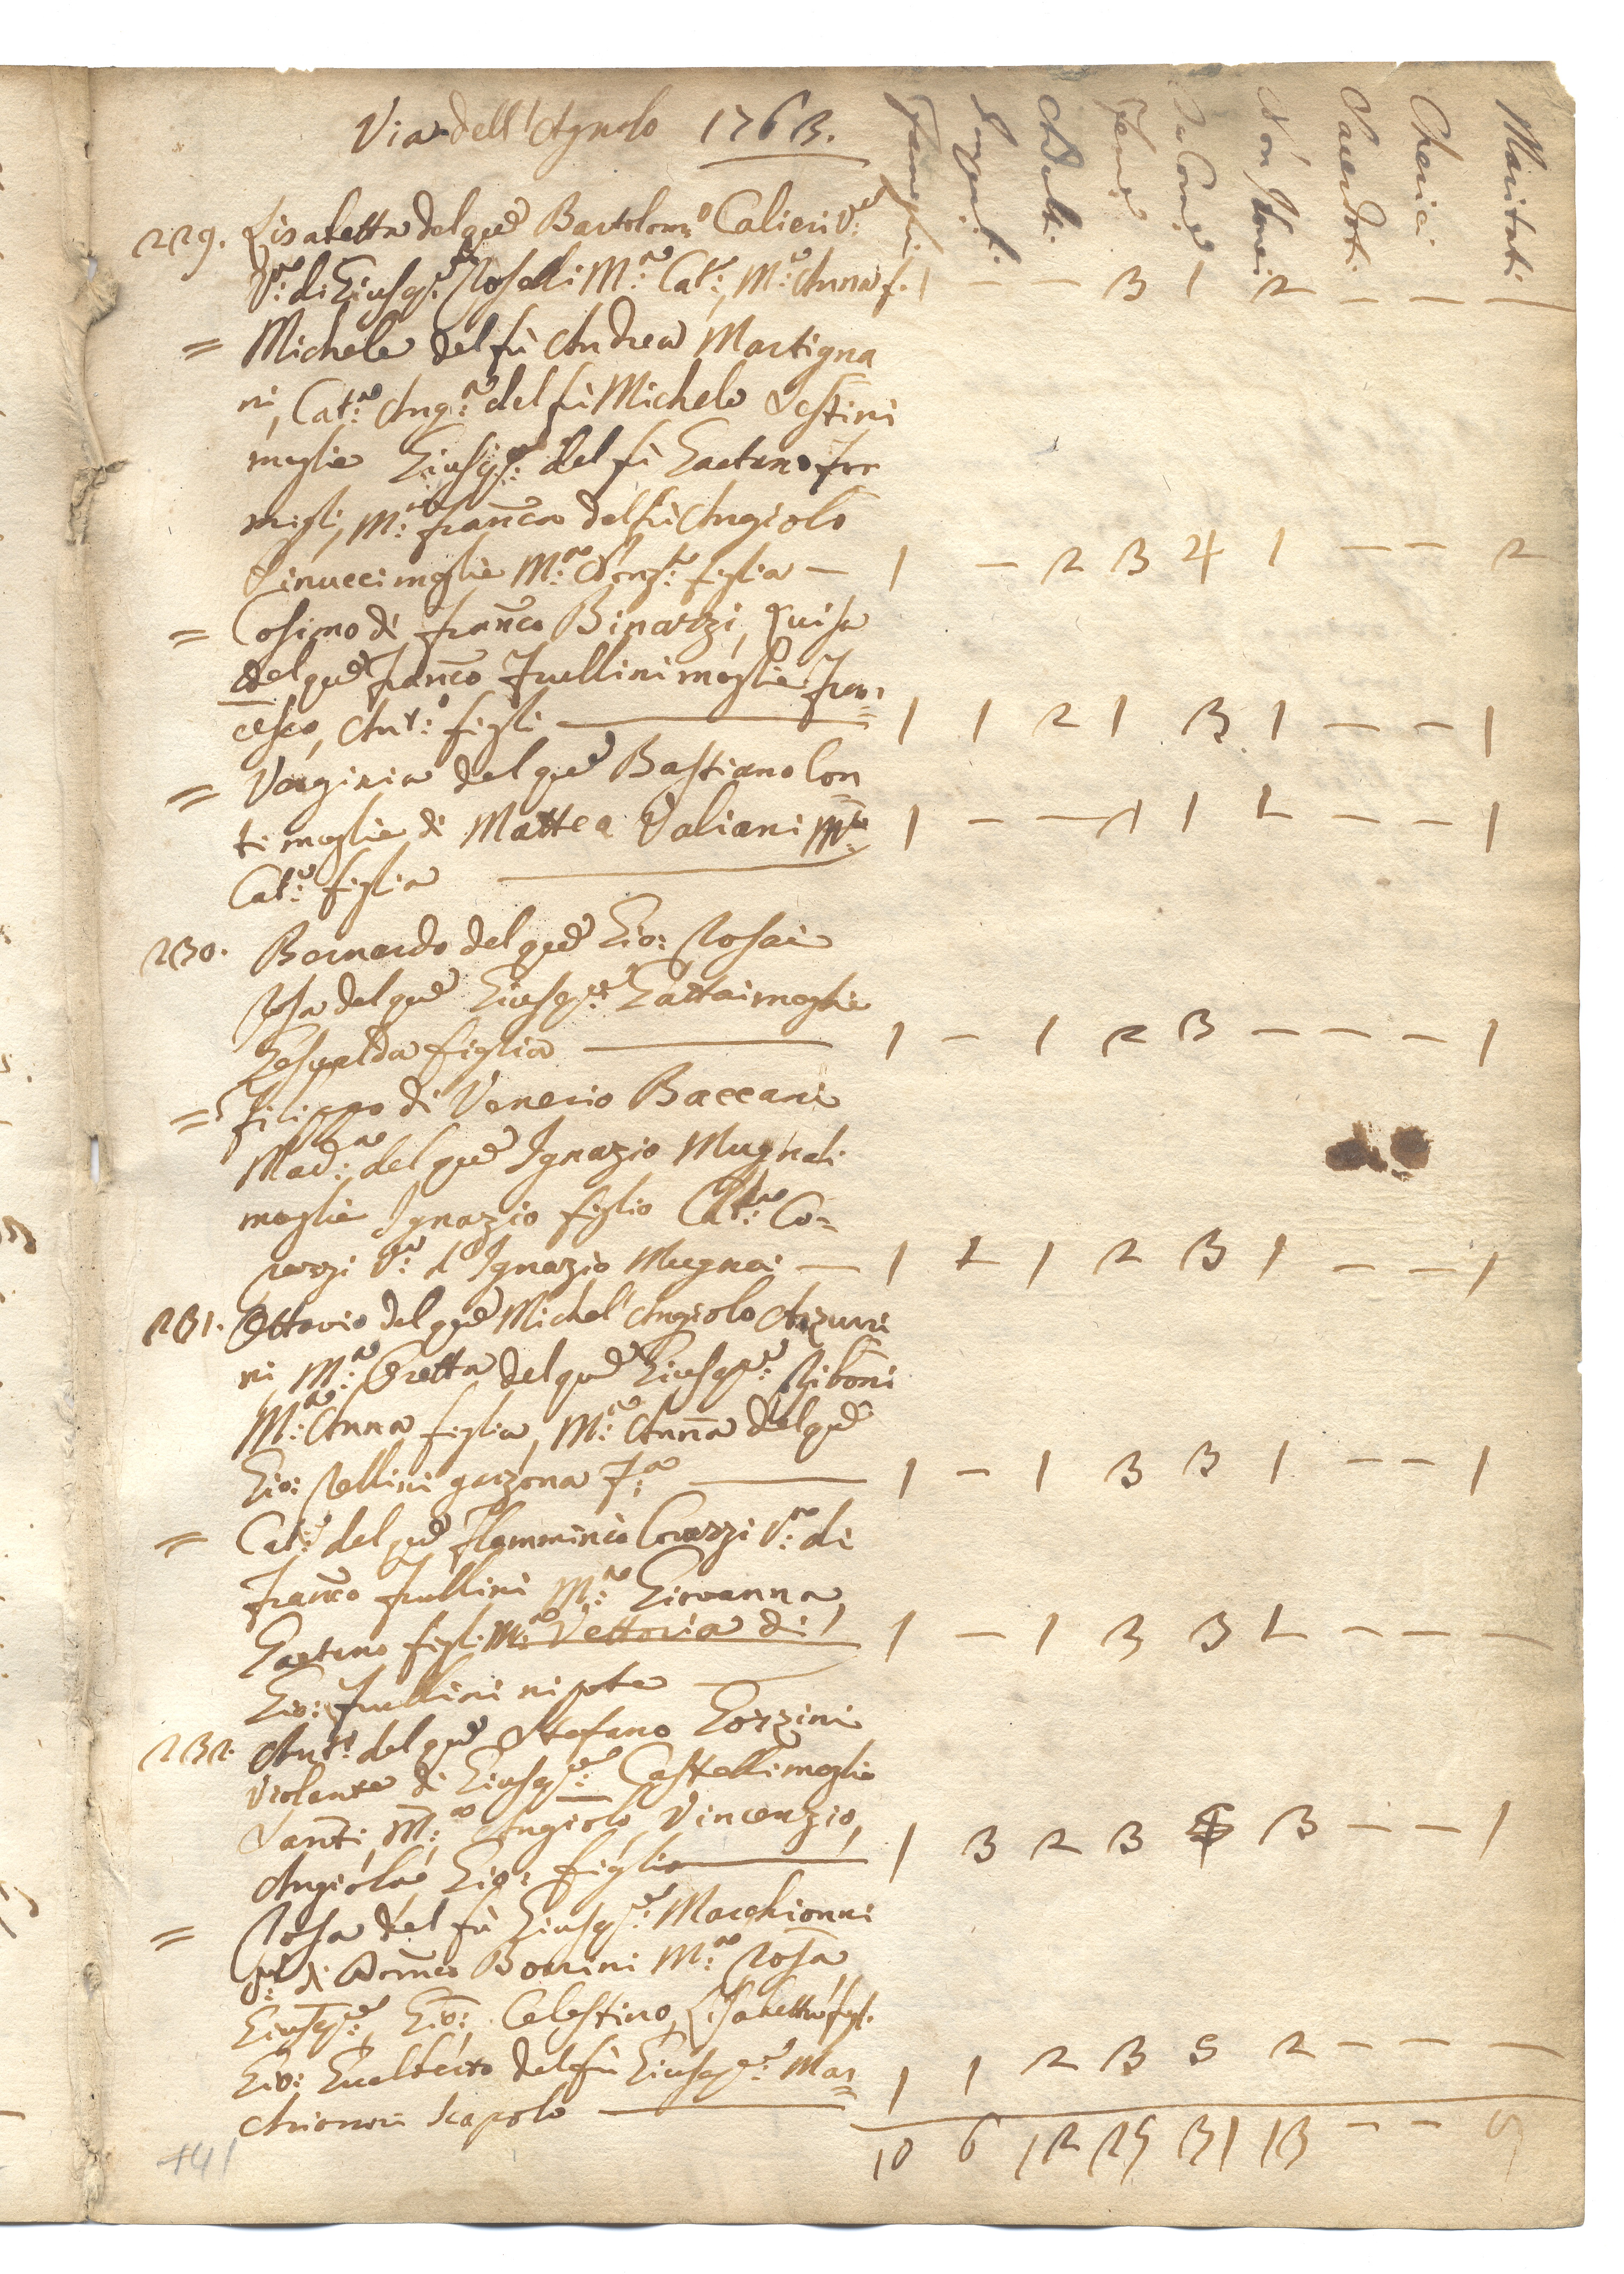 Via dell'Agnolo 1763.
Famigli. Impub. Adult. Femi. Da Com. Non Com. Sacerdoti Cherici Maritati
229. Lisabetta del qu. Bartolom:o Calieri V:a
V:a di Giusep:e Roselli M:a Cat:a, M:a Anna f. 1 – – 3 1 2 – – –
= Michele del fù Andrea Martigna
ni, Cat:a Ang:a del fù Michele Sestini
moglie Giusep:e del fù Gaetano
migli, M:a Franca del fù Angiolo
Rinucci moglie M:a figlia – 1 – 2 3 4 1 – – 2
= Cosimo di Franco Binazzi, Luisa
del qu. Franco Frullini moglie Fran=
cesco, Ant:o figli – 1 1 2 1 3 1 – – 1
= Verginia del qu. Bastiano Con
ti moglie di Matteo Valiani M:a 1 – – 1 1 1 – – 1
Cat:a figlia –
230. Bernardo del qu. Gio: Rosai
Rosa del qu. Giusep:e Gattai moglie
Gesualda figlia – 1 – 1 2 3 – – – 1
= Filippo di Venerio Baccani
Mad:a del qu. Ignazio Mugnai
moglie Ignazio figlio Cat:a Co=
razzi V:a d'Ignazio Mugnai – 1 1 1 2 3 1 – – 1
231. Ottavio del qu. Michel'Angiolo Azzuri
ni, M:a Oretta del qu. Giusep:e Riboni
M:a Anna figlia, M:a Anna del qu.
Gio: Sellini garzona F:a – 1 – 1 3 3 1 – – 1
= Cat:a del qu. Flamminio Corazzi V:a di
Franco Frullini M:a Giovanna,
Gaetano figli M:a Vettoria di 1 – 1 3 3 1 – – –
Gio: Frullini nipote –
232. Ant:o del qu. Stefano Gozzini
Violante di Giusep:e Castelli moglie
Santi, M:a Angiola, Vincenzio,
Angiola, Gio: figli – 1 3 2 3 3 – – 1
= Rosa del fù Giusep:e Marchionni
V:a di Dom:co Borrini M:a Rosa
Giusep:e, Gio: Celestino, Lisabetta figl.
Gio: Gualberto del fù Giusep:e Mar=
chionni scapolo – 1 1 2 3 5 2 – – –
10 6 12 25 31 13 – – 9
141